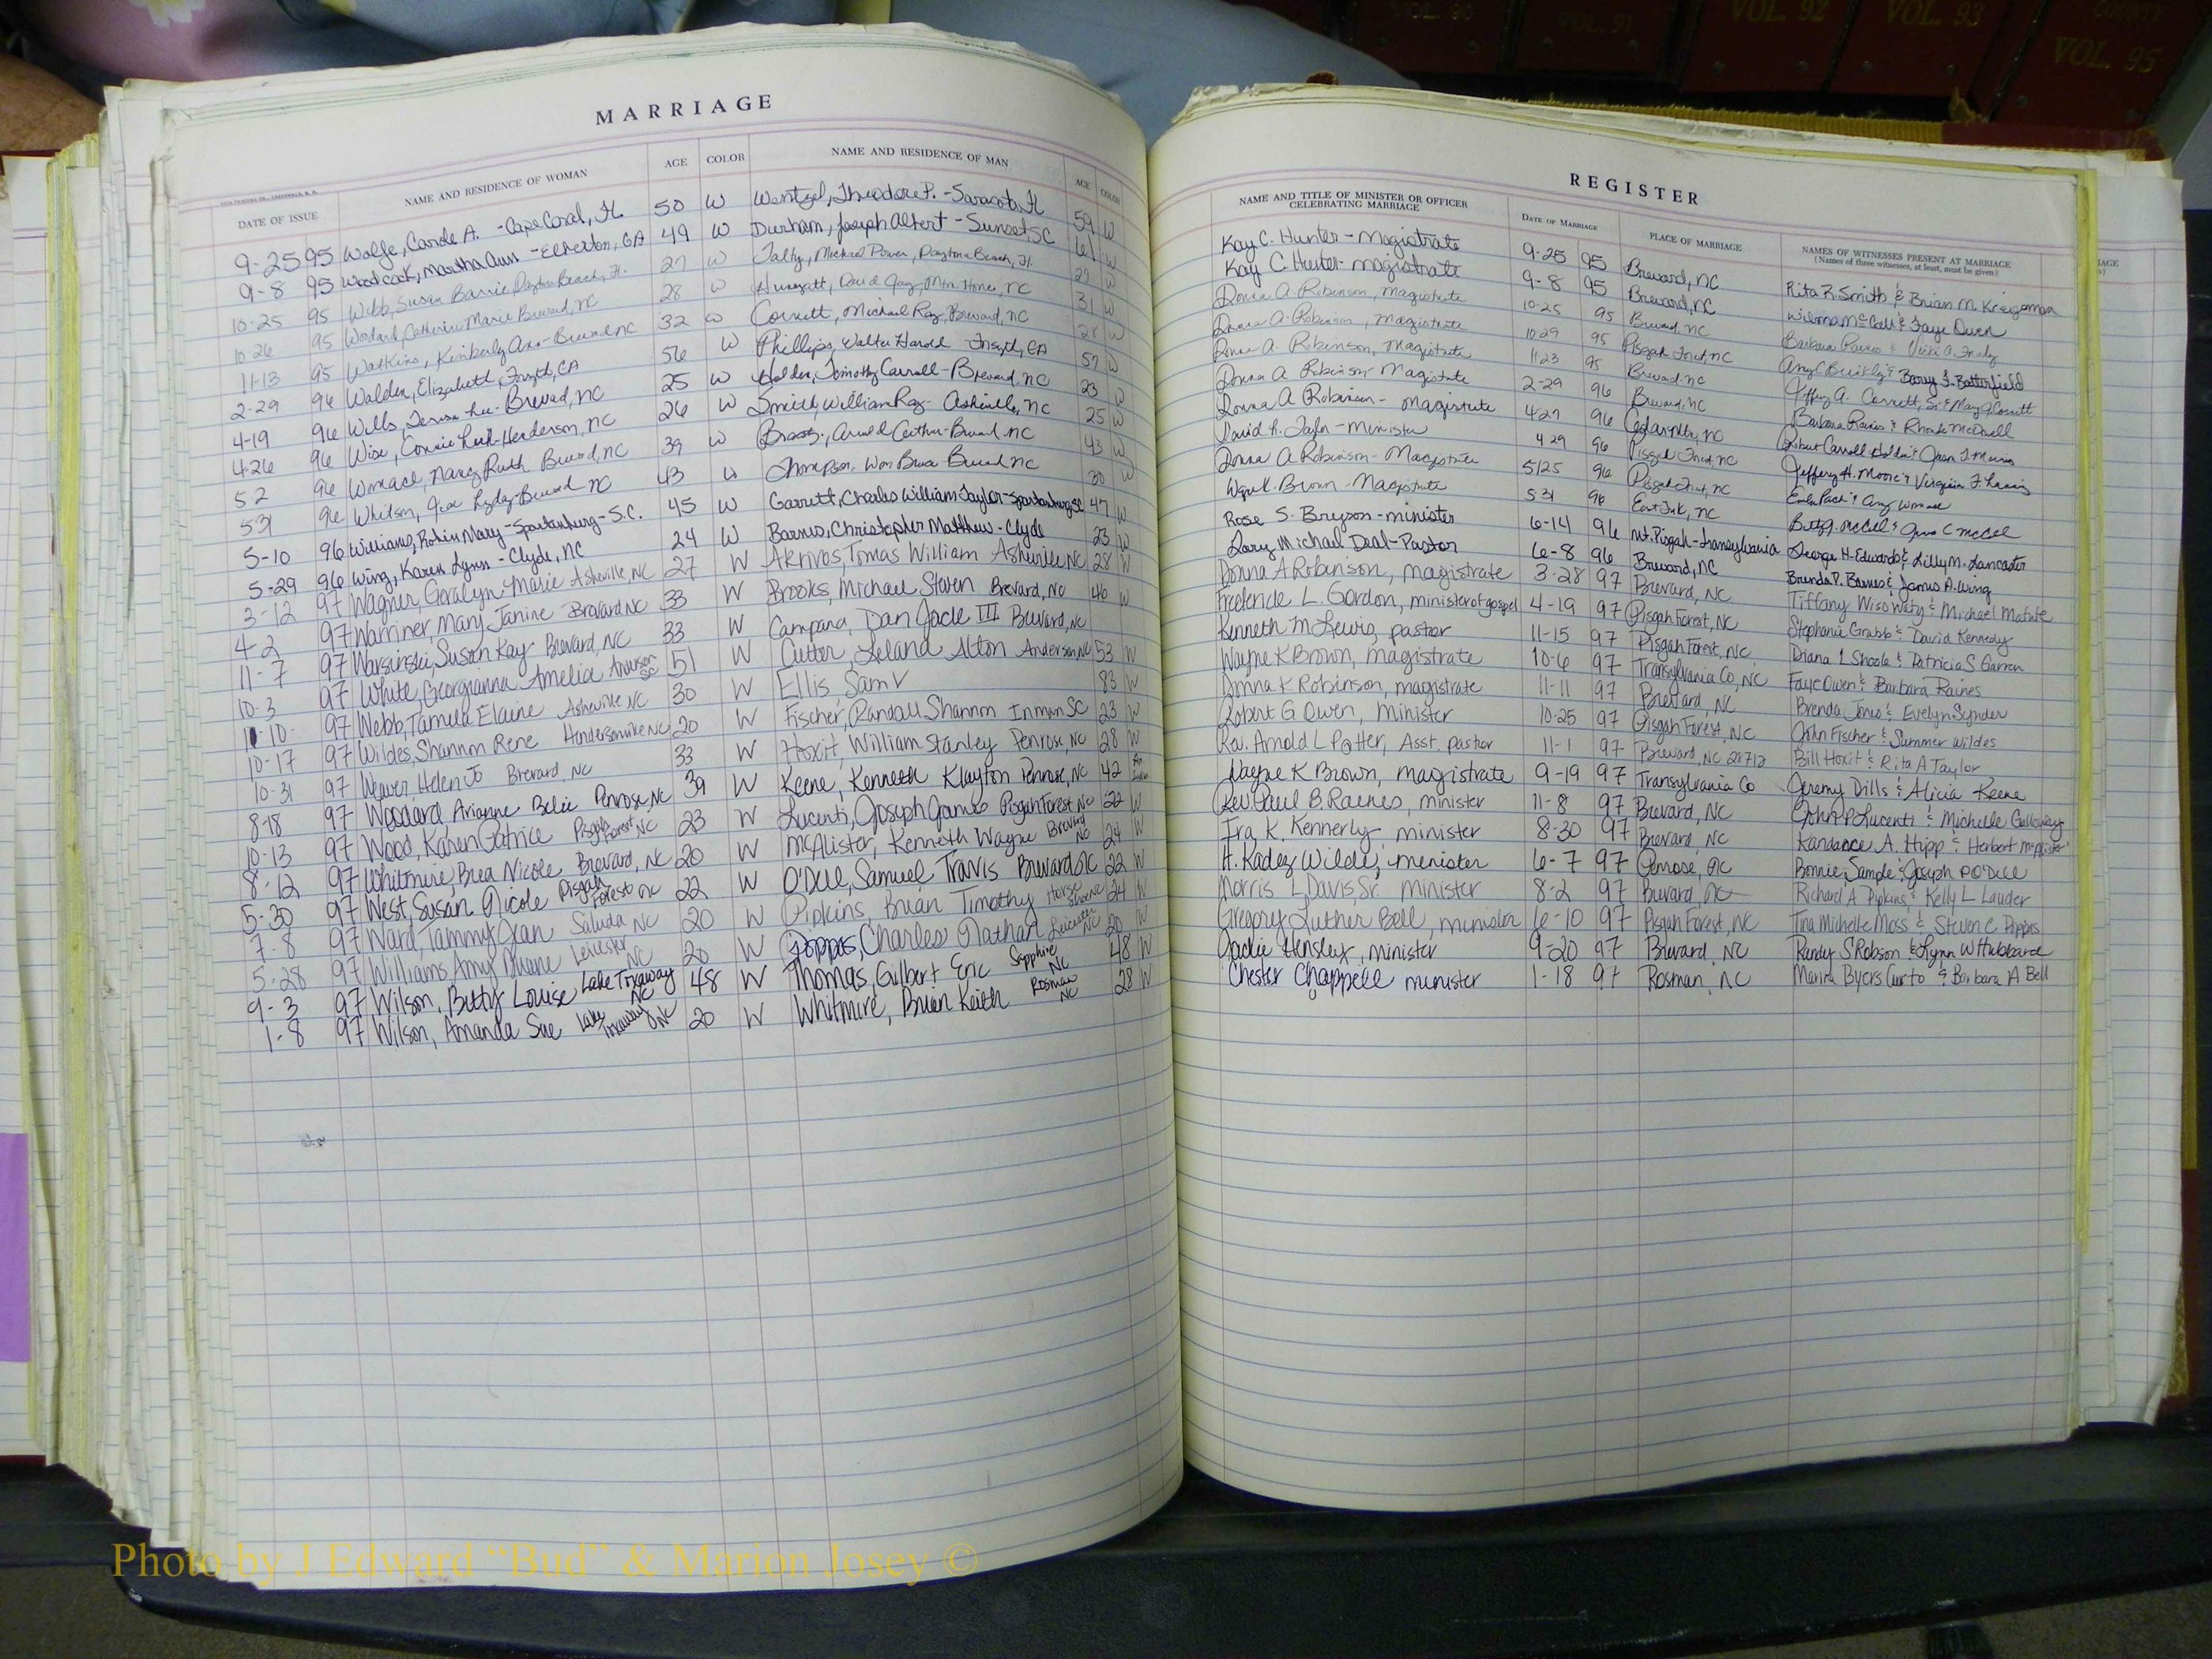 VOL. 90
VOL. 91
VOL. 92
VOL. 93
COUNTY
VOL. 95
MARRIAGE
DATE OF ISSUE NAME AND RESIDENCE OF WOMAN AGE COLOR NAME AND RESIDENCE OF MAN AGE COLOR
9-25 95 Wolfe, Carole A. - Cape Coral, FL 50 W Wentzel, Theodore P. - Sarasota, FL 59 W
9-8 95 Woodcock, Martha Ann - Elberton, GA 49 W Durham, Joseph Albert - Sunset, SC 61 W
10-25 95 Webb, Susan Barrie, Dayton Beach, Fl. 27 W Talty, Michael Power, Daytona Beach, Fl. 27 W
10-26 95 Woodard, Catherine Marie Brevard, NC 28 W David Gay, Mtn. Home, NC 31 W
11-13 95 Watkins, Kimberly Ann - Brevard NC 32 W Cornett, Michael Ray, Brevard, NC 28 W
2-29 96 Walden, Elizabeth, Forsyth, GA 56 W Phillips, Walter Harold Forsyth, GA 57 W
4-19 96 Wills, Teresa Lee - Brevard, NC 25 W Holden, Timothy Carroll - Brevard, NC 23 W
4-26 96 Wise, Connie Ruth - Henderson, NC 26 W Smith, William Ray - Asheville, NC 25 W
5 2 96 Womack, Nancy Ruth Brevard, NC 39 W Arnold Arthur - Brevard NC 43 W
531 96 Whitson, Lyday - Brevard NC 43 W Thompson, Won Bruce - Brevard NC 30 W
5-10 96 Williams, Robin Mary - Spartanburg - S.C. 45 W Garrett, Charles William Taylor - Spartanburg SC 47 W
5-29 96 Wing, Karen Lynn - Clyde, NC 24 W Barnes, Christopher Matthew - Clyde 23 W
3-12 97 Wagner, Geralyn Marie Asheville, NC 27 W Akrivos, Tomas William Asheville NC 28 W
4-2 97 Warriner, Mary Janine Brevard NC 33 W Brooks, Michael Steven Brevard, NC 46 W
11-7 97 Warsinski, Susan Kay Brevard, NC 33 W Campana, Dan Jack III Brevard, NC
10-3 97 White, Georgianna Amelia Anderson SC 51 W Cutter, Leland Alton Anderson, 53 W
11-10- 97 Webb, Tamela Elaine Asheville NC 30 W Ellis, Sam V 83 W
10-17 97 Wildes, Shannon Rene Hendersonville NC 20 W Fischer, Randall Shannon Inman SC 23 W
10-31 97 Weaver Helen Jo Brevard, NC 33 W Hoxit, William Stanley Penrose, NC 28 W
8-18 97 Woodard Arianne Belie Penrose NC 39 W Keene, Kenneth Klayton Penrose, NC 42
10-13 97 Wood, Karen Patrice Pisgah Forest, NC 23 W Lucenti, Joseph James Pisgah Forest NC 22 W
8-12 97 Whitmire, Brea Nicole Brevard, NC 20 W McAlister, Kenneth Wayne Brevard NC 24 W
5-30 97 West, Susan Nicole Pisgah Forest NC 22 W O'Dell, Samuel Travis Brevard, NC 22 W
7-8 97 Ward, Tammy Jean Saluda NC 20 W Pipkins, Brian Timothy Horse Shoe NC 24 W
5-28 97 Williams Amy Duane Leicester NC 20 W Poppas, Charles Nathan Leicester NC 20 W
9-3 97 Wilson, Betty Louise Lake Toxaway NC 48 W Thomas, Gilbert Eric Sapphire NC 48 W
1-8 97 Wilson, Amanda Sue Lake Toxaway NC 20 W Whitmire, Brian Keith Rosman NC 28 W
REGISTER
NAME AND TITLE OF MINISTER OR OFFICER CELEBRATING MARRIAGE DATE OF MARRIAGE PLACE OF MARRIAGE NAMES OF WITNESSES PRESENT AT MARRIAGE
(Names of three witnesses, at least, must be given)
Kay C. Hunter - Magistrate 9-25 95 Brevard, NC Rita R. Smith & Brian M. Kreigsman
Kay C. Hunter - Magistrate 9-8 95 Brevard, NC Wilma McCall & Faye Owen
Donna A. Robinson, Magistrate 10-25 95 Brevard, NC Barbara Raines &
Donna A. Robinson, Magistrate 10-29 95 Pisgah Forest, NC Barry Butterfield
Donna A. Robinson, Magistrate 11-23 95 Brevard NC Jeffrey A. Cornett, Sr. & Mary Cornett
Donna A Robinson Magistrate 2-29 96 Brevard, NC Barbara Raines & Rhonda McDowell
Donna A Robinson - Magistrate 4-27 96 NC
David R. Taylor - Minister 4 29 96 Pisgah Forest, NC Jeffery H. Moore & Virginia F.
Donna A Robinson - Magistrate 5/25 96 Pisgah Forest, NC & Amy Womack
Wayne K. Brown - Magistrate 5 31 96 East Fork, NC McCall & C McCall
Rose S. Bryson - minister 6-14 96 Mt. Pisgah - Transylvania George H. Edwards & Lilly M. Lancaster
Larry Michael Deal - Pastor 6-8 96 Brevard, NC Brenda P. Barnes & James A. Wing
Donna A Robinson, magistrate 3-28 97 Brevard, NC Tiffany & Michael
Frederick L. Gordon, minister of gospel 4-19 97 Pisgah Forest, NC Stephanie Grabb & David Kennedy
Kenneth M Lewis, pastor 11-15 97 Pisgah Forest, NC Diana L Shoole & Patricia S Garren
Wayne K Brown, magistrate 10-6 97 Transylvania Co, NC Faye Owen & Barbara Raines
Donna K Robinson, magistrate 11-11 97 Brevard, NC Brenda Jones & Evelyn Synder
Robert G Owen, Minister 10-25 97 Pisgah Forest, NC John Fischer & Summer Wildes
Rev. Arnold L Potter, Asst. pastor 11-1 97 Brevard, NC 28712 Bill Hoxit & Rita A Taylor
Wayne K Brown, magistrate 9-19 97 Transylvania Co Jeremy Dills & Alicia Keene
Rev Paul B Raines, minister 11-8 97 Brevard, NC John P Lucenti & Michelle Galloway
Ira K. Kennerly, minister 8-30 97 Brevard, NC Kandace A. Hipp & Herbert McAlister
H. Kadez Wilde, minister 6-7 97 Penrose, NC Bonnie Sample & Joseph P O'Dell
Morris L Davis, Sr. minister 8-2 97 Brevard, NC Richard A Pipkins & Kelly L Lauder
Gregory Luther Bell, minister 6-10 97 Pisgah Forest, NC Tina Michelle Moss & Steven C Poppas
Jackie Hensley, minister 9-20 97 Brevard, NC Randy S Robson & Lynn W Hubbard
Chester Chappell minister 1-18 97 Rosman, NC Marina Byers Curto & Barbara A Bell
Photo by J Edward “Bud” & Marion Josey ©